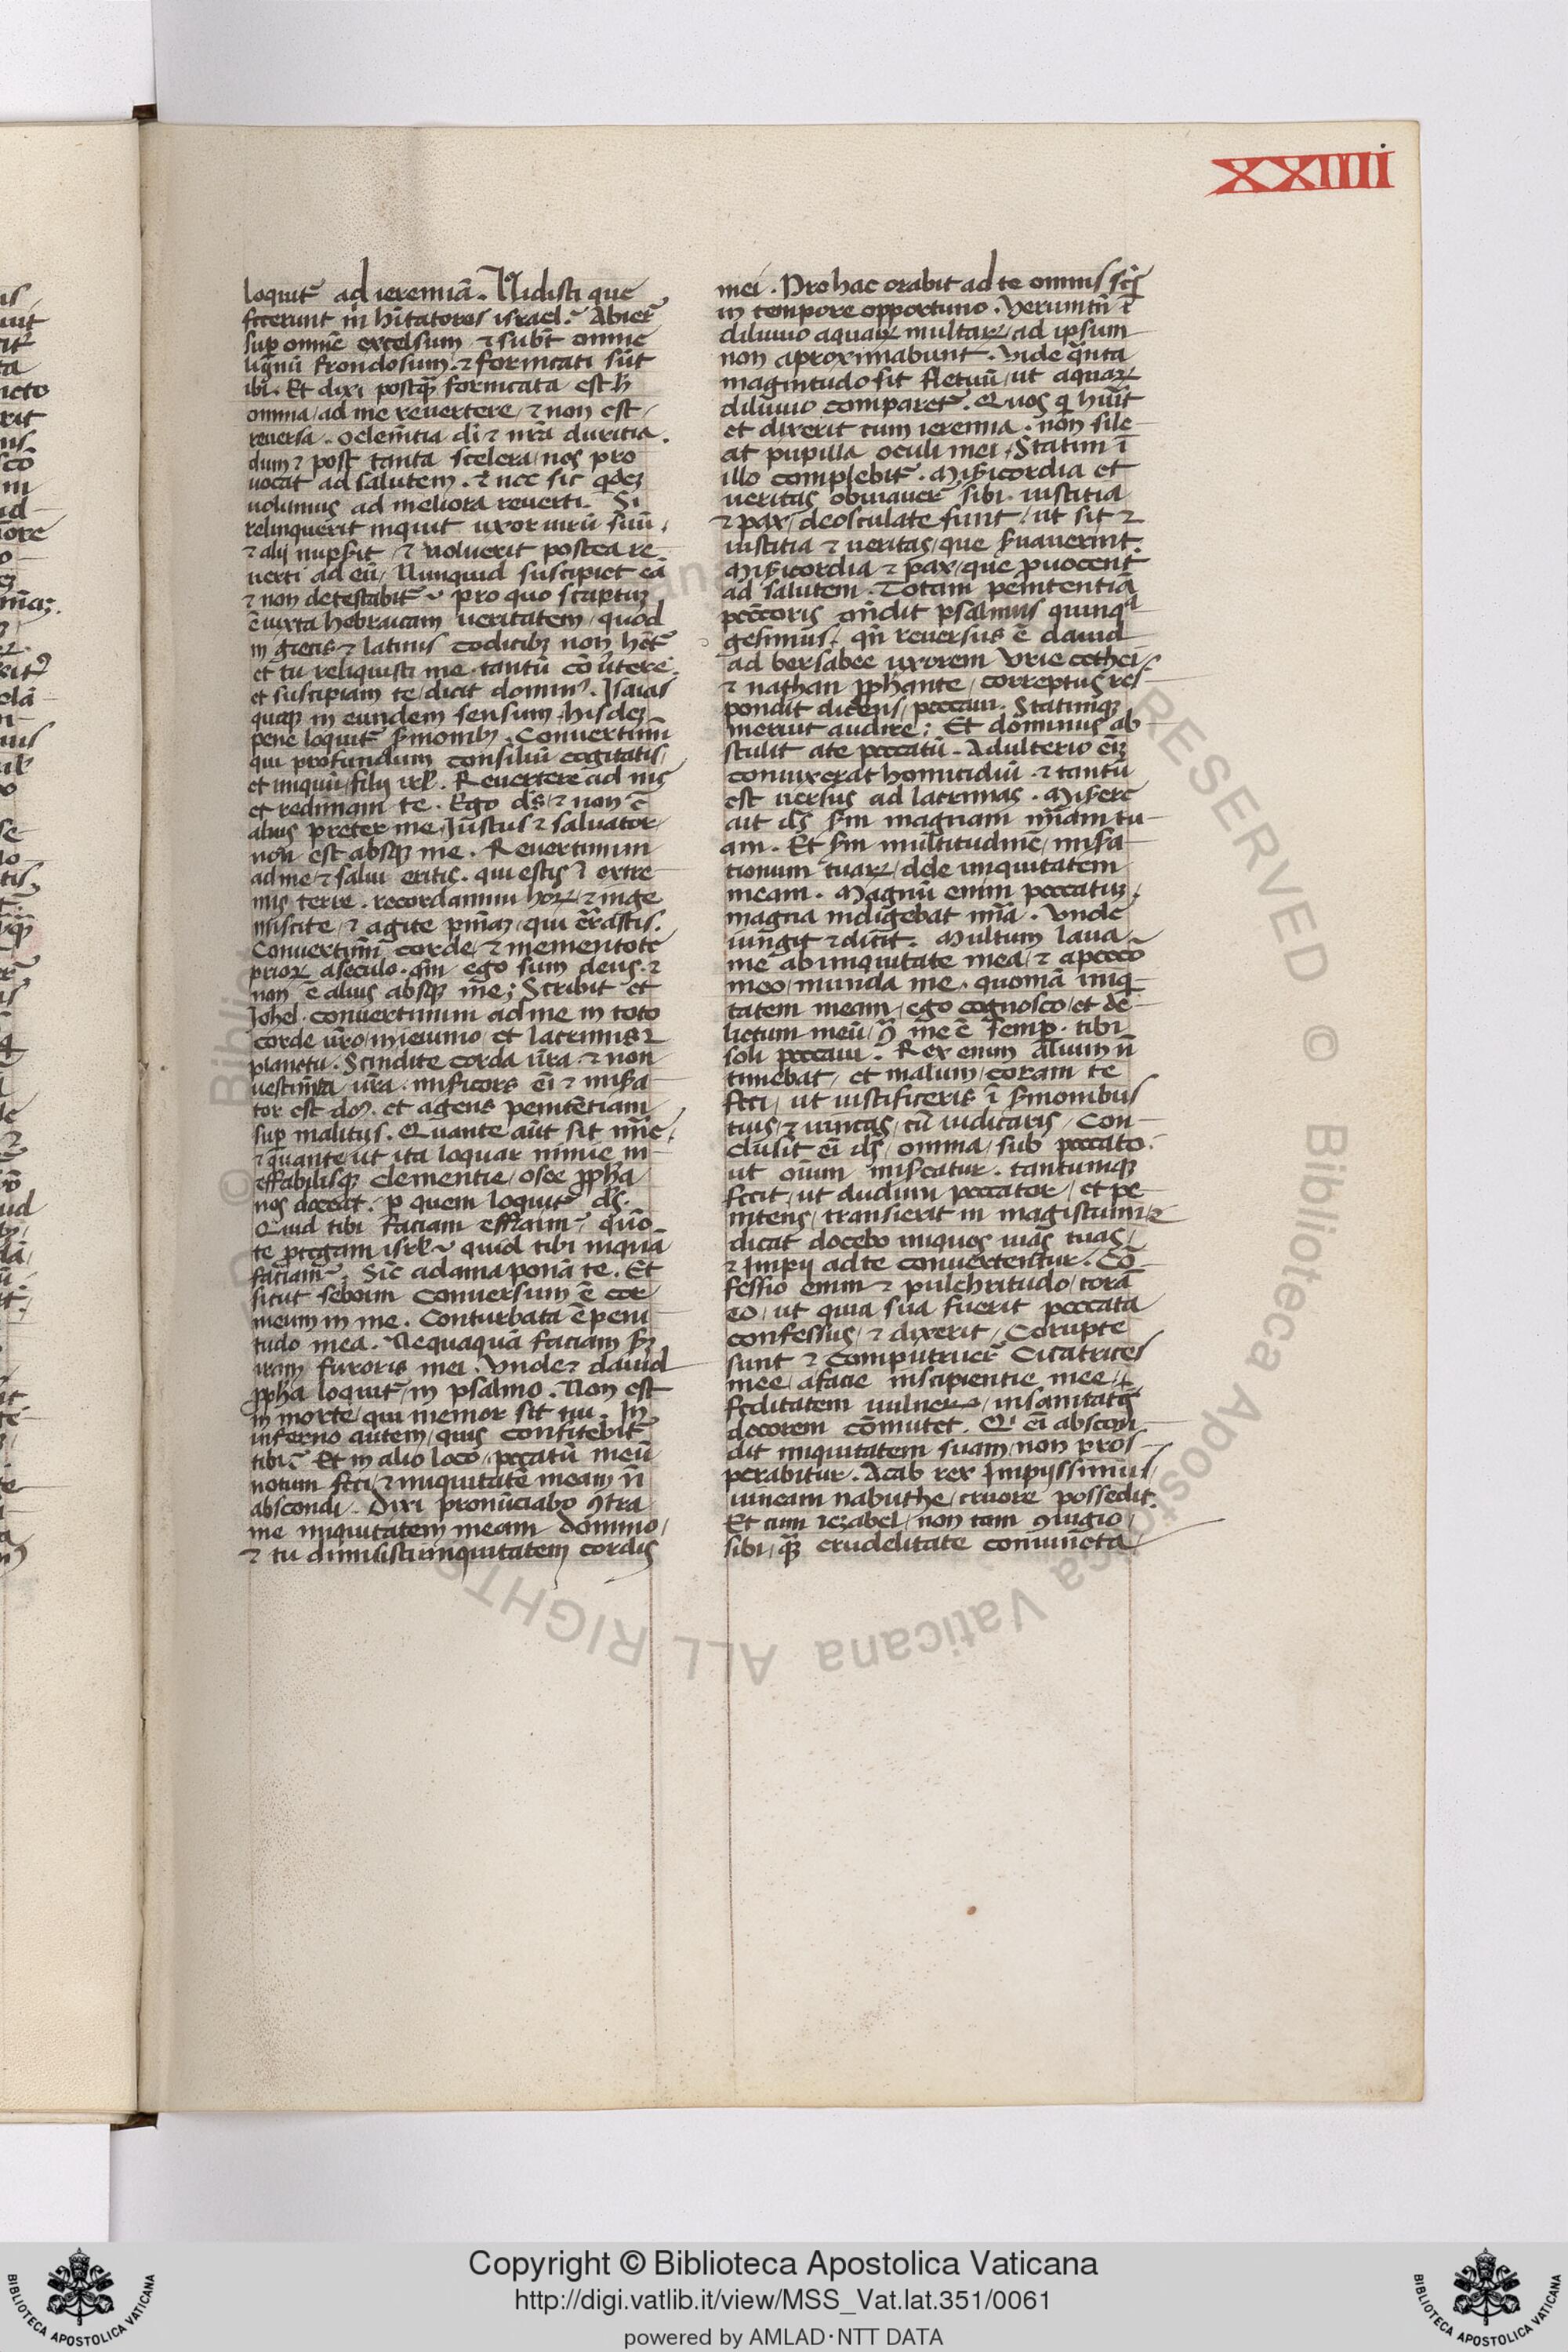 XXIIII
loquit᷑ ad ieremiā. Nidisti que
fecerunt m̄ hītatores israel. Abier᷑
sup omnē excelsum ⁊ subt᷑ omne
lignū frondosum. ⁊ fornicati sūt
ibi. Et dixi postq̄ fornicata est h̄
omnia / ad me reuertere / ⁊ non est /
reuersa. o clemētia di ⁊ nr̄a duritia.
dum ⁊ post tanta scelera / nos pro
uocat ad salutem. ⁊ nec sic qdeȝ
volumus ad meliora reuerti. Si
relinquerit inquit uxor uirū suū /
⁊ alij nupserit / ⁊ uoluerit postea re
uerti ad eū / Nunquid suscipiet eā
⁊ non detestabit᷑ pro quo scriptuȝ
ē iuxta hebraicam ueritatem / quod
in grecis ⁊ latinis codicibȝ non hēt᷑
et tu reliquisti me. tantū cōuertere.
et suscipiam te / dicit domin᾿. Isaias
quoqȝ in eundem sensum / hisdeȝ
pene loquit᷑ s̄monibȝ. Conuertimī
qui profundum consiliū cogitatis /
et iniquū / filij isrl̄. Reuertere ad me
et redimam te. Ego ds̄ / ⁊ non ē
alius preter me / Iustus ⁊ saluator /
non est absqȝ me. Reuertimini
ad me / ⁊ salui eritis. qui estis ī extre
mis terre. recordamini horꝝ / ⁊ inge
miscite / ⁊ agite pnīaȝ / qui errastis.
Conuertimī corde / ⁊ mementote
priorꝝ a seculo. qm̄ ego sum deus. ⁊
non ē alius absqȝ me; Scribit et
Iohel. conuertimini ad me in toto
corde ur̄o / in ieiunio / et lacrimis ⁊
planctu. Scindite corda ur̄a ⁊ non
uestimta ur̄a. misericors eī ⁊ misera
tor est dn̄s. et agens penitētiam
sup malitijs. Quante aūt sit mīe /
⁊ quante / ut ita loquar nimie in
effabilisqȝ clementie / osee ꝓpha
nos doceat. p quem loquit᷑ ds̄.
Quid tibi faciam effraim / quō
te ꝓtegam isrl̄ / quid tibi inquā
faciam. Sic adama ponā te. Et
sicut seboim conuersum ē cor
meum in me. Conturbata ē peni
tudo mea. Nequaquā faciam s̄
iram furoris mei. Vnde ⁊ dauid
ꝓpha loquit᷑ in psalmo. Non est
in morte / qui memor sit tui. In
inferno autem / quis confitebit᷑
tibi. Et in alio loco / pccatū meū
notum feci / ⁊ iniquitatē meam n̄
abscondi. Dixi pronūciabo ꝯtra
me iniquitatem meam domino /
⁊ tu dimisisti iniquitatem cordis
mei. Pro hac orabit ad te omnis scs̄
in tempore opportuno. Verumtn̄ ī
diluuio aquaꝝ multaꝝ / ad ipsum
non aproximabunt. Vide q̄nta
magnitudo sit fletuū / ut aquaꝝ
diluuio comparet᷑. Quos q̄ hūit
et dixerit cum ieremia. non sile
at pupilla oculi mei. Statim ī
illo complebit᷑. Misericordia et
ueritas obuiauer᷑ sibi. iustitia
⁊ pax / deosculate sunt / ut sit ⁊
iustitia ⁊ ueritas / que s̄uauerint.
Misericordia ⁊ pax / que ꝓuocent
ad salutem. Totam penitentiā
pctoris on̄dit psalmus quinqᵃ
gesimus. qn̄ reuersus ē dauid
ad bersabee uxorem Vrie cethei /
⁊ nathan ꝓphante / correptus res
pondit dicens / peccaui. Statimqȝ
meruit audire; Et dominus ab
stulit a te peccatū. Adulterio eīȝ
coniuxerat homicidiū. ⁊ tantū
est uersus ad lacrimas. Misere
ait ds̄ scd̄m magnam mīam tu
am. Et scd̄m multitudinē / misera
tionum tuaꝝ / dele iniquitatem
meam. Magnū enim peccatuȝ /
magna indigebat mīa. Vnde
iungit ⁊ dicit. Multum laua
me ab iniquitate mea / ⁊ a pccō
meo / munda me. quoniā iniq
tatem meam / ego cognosco / et de
lictum meū / ꝯ me ē semp. tibi
soli peccaui. Rex enim alium n̄
timebat / et malum / coram te
feci / ut iustificeris ī s̄monibus
tuis / ⁊ uincas / cū iudicaris / Con
clusit eī ds̄ / omnia / sub peccato.
ut oīum misereatur. tantumqȝ
fecit / ut dudum peccator / et pe
nitens / transierit in magistrum / ⁊
dicat docebo iniquos uias tuas /
⁊ Impij ad te conuertentur. Cō
fessio enim ⁊ pulchritudo / corā
eo / ut quia sua fuerit peccata
confessus / ⁊ dixerit / Corupte
sunt ⁊ computruer᷑ Cicatrices
mee / a facie insipientie mee /
feditatem uulneꝝ / in sanitatis
decorem cōmutet. Qⁱ eī abscon
dit iniquitatem suam / non pros
perabitur. Acab rex Impijssimus /
uineam nabuthe / cruore possedit.
Et cum iezabel / non tam ꝯiugio /
sibi / qȝ crudelitate coniuncta /
Copyright © Biblioteca Apostolica Vaticana
http://digi.vatlib.it/view/MSS_Vat.lat.351/0061
powered by AMLAD·NTT DATA
BIBLIOTECA APOSTOLICA VATICANA
BIBLIOTECA APOSTOLICA VATICANA
© Biblioteca Apostolica Vaticana ALL RIGHTS RESERVED